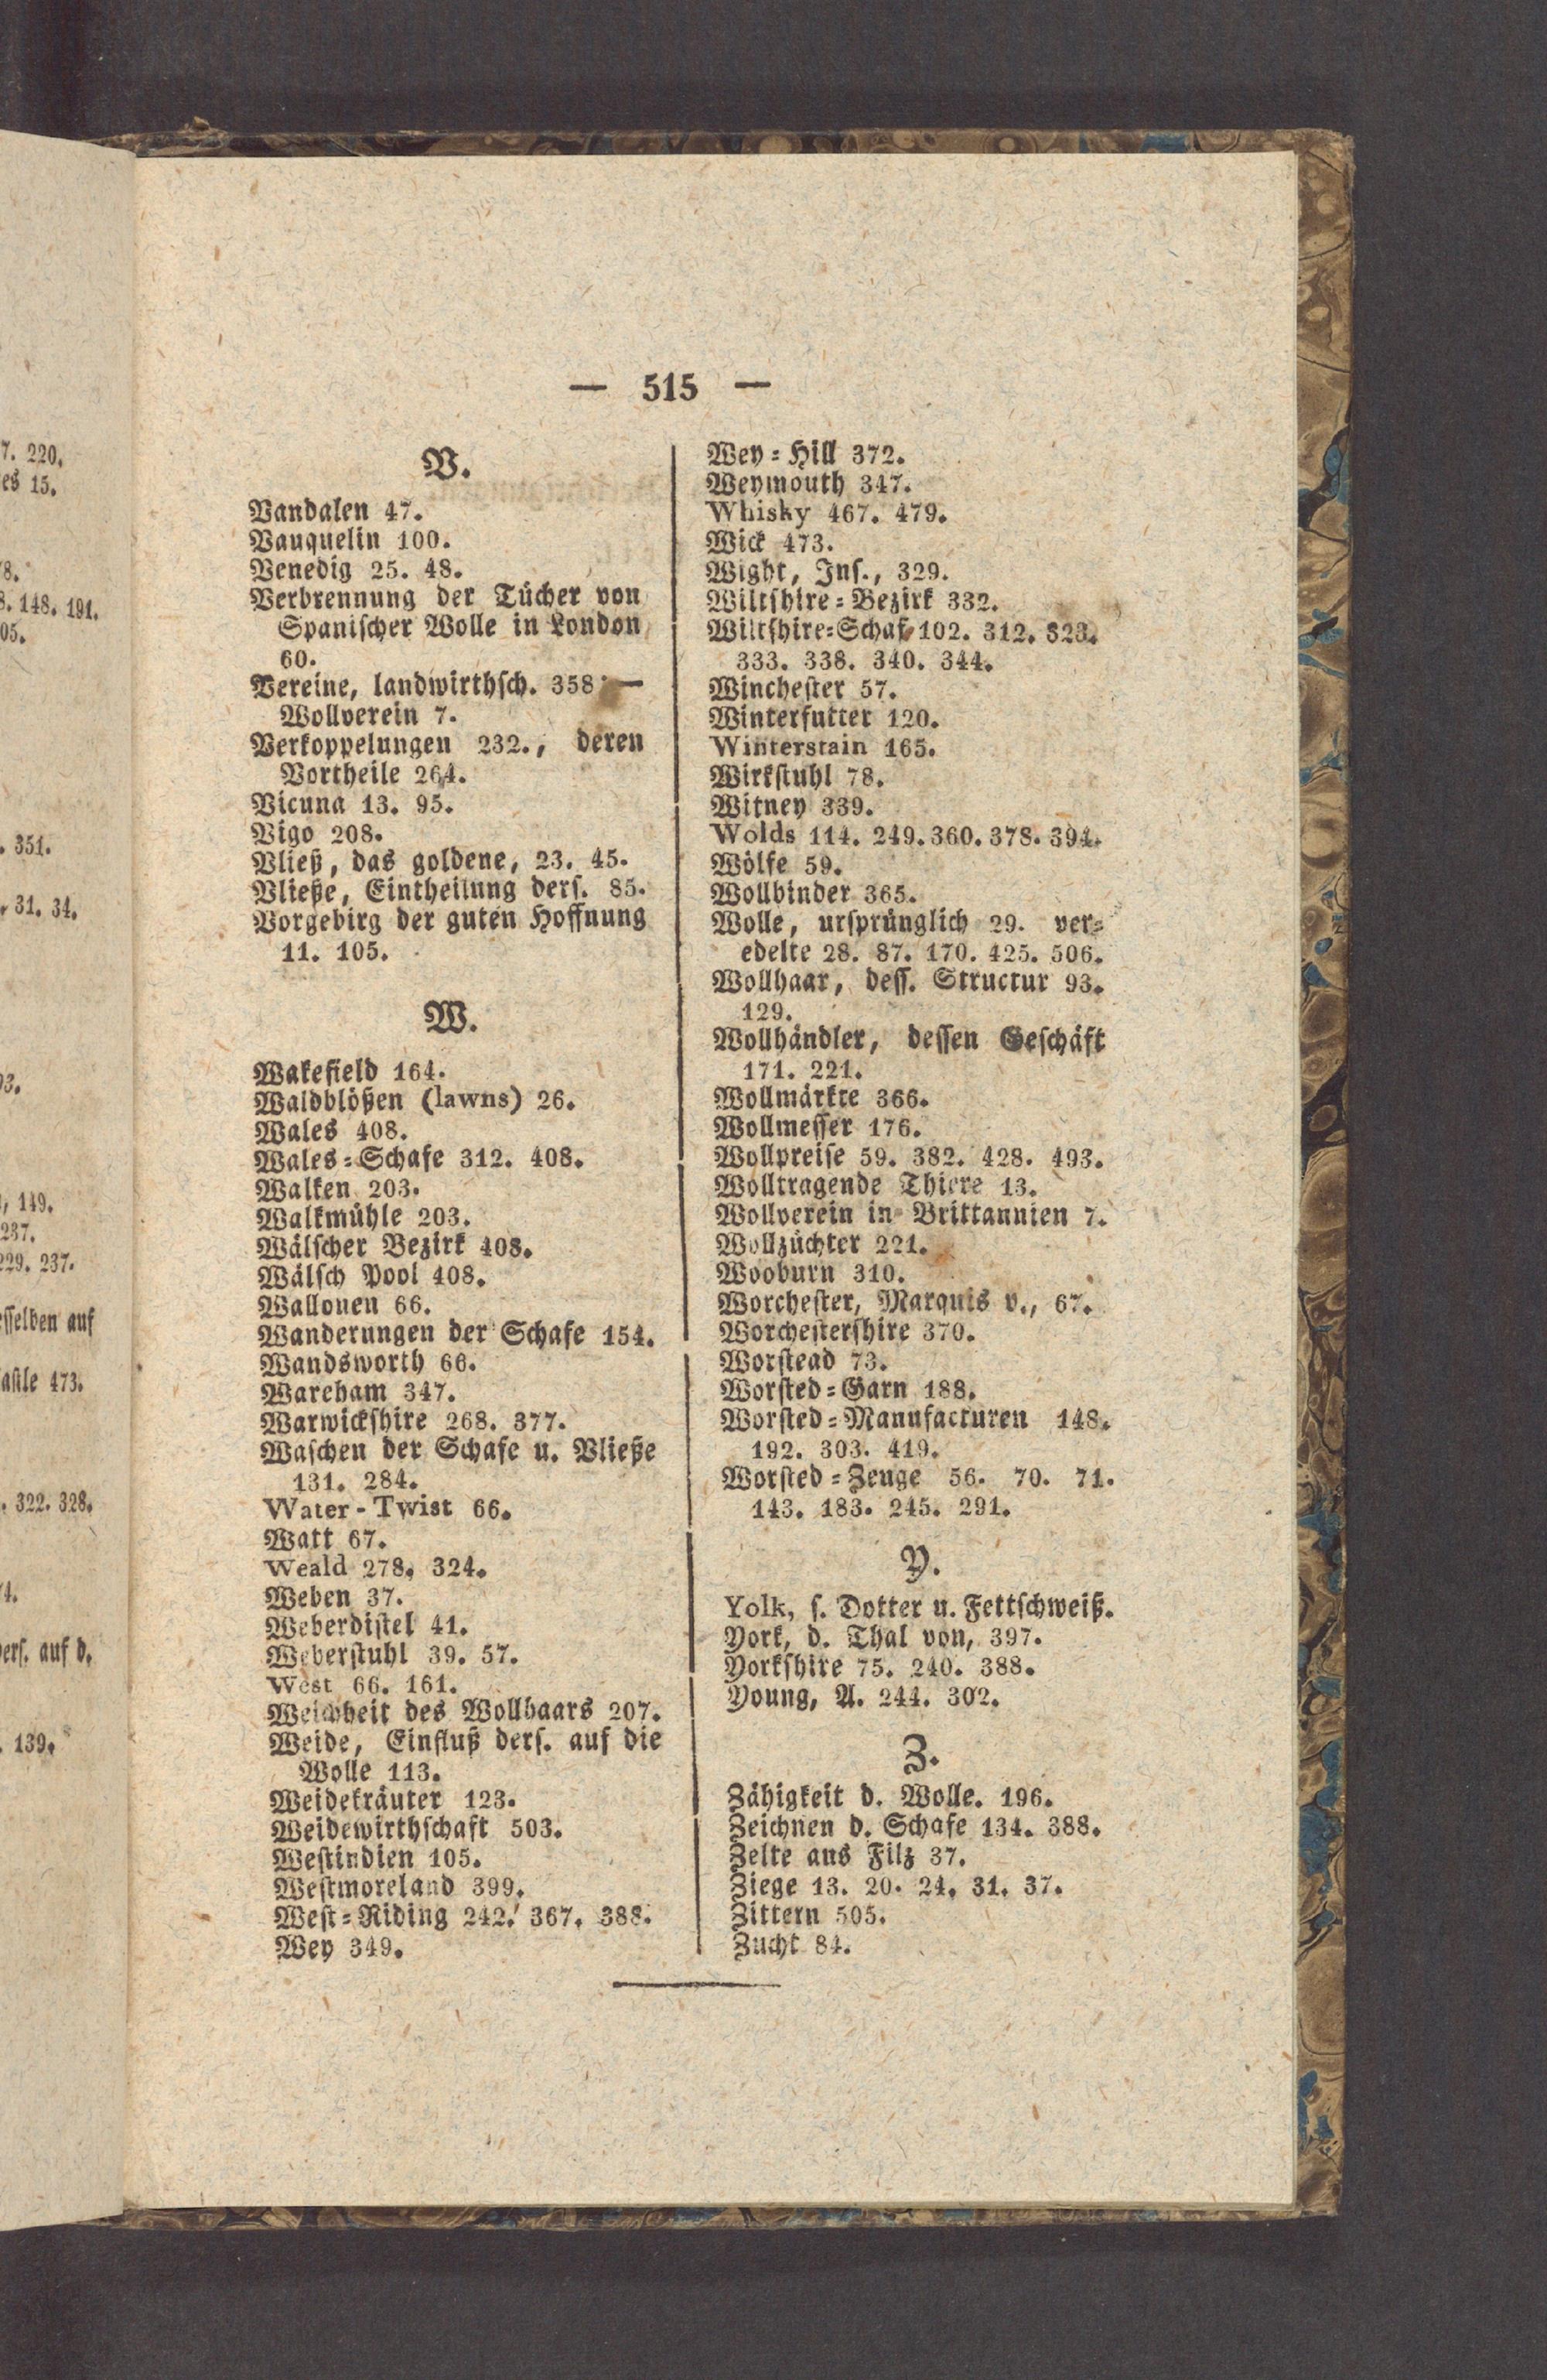 — 515 —
V.
Vandalen 47.
Vauquelin 100.
Venedig 25. 48.
Verbrennung der Tücher von
Spanischer Wolle in London
60.
Vereine, landwirthsch. 358 —
Wollverein 7.
Verkoppelungen 232., deren
Vortheile 264.
Vicuna 13. 95.
Vigo 208.
Vließ, das goldene, 23. 45.
Vließe, Eintheilung ders. 85.
Vorgebirg der guten Hoffnung
11. 105.
W.
Wakefield 164.
Waldblößen (lawns) 26.
Wales 408.
Wales=Schafe 312. 408.
Walken 203.
Walkmühle 203.
Wälscher Bezirk 408.
Wälsch Pool 408.
Wallonen 66.
Wanderungen der Schafe 154.
Wandsworth 66.
Wareham 347.
Warwickshire 268. 377.
Waschen der Schafe u. Vließe
131. 284.
Water-Twist 66.
Watt 67.
Weald 278. 324.
Weben 37.
Weberdistel 41.
Weberstuhl 39. 57.
West 66. 161.
Weichheit des Wollhaars 207.
Weide, Einfluß ders. auf die
Wolle 113.
Weidekräuter 123.
Weidewirthschaft 503.
Westindien 105.
Westmoreland 399.
West=Riding 242. 367. 388.
Wey 349.
Wey=Hill 372.
Weymouth 347.
Whisky 467. 479.
Wick 473.
Wight, Ins., 329.
Wiltshire=Bezirk 332.
Wiltshire=Schaf 102. 312. 323.
333. 338. 340. 344.
Winchester 57.
Winterfutter 120.
Winterstain 165.
Wirkstuhl 78.
Witney 339.
Wolds 114. 249. 360. 378. 394.
Wölfe 59.
Wollbinder 365.
Wolle, ursprünglich 29. ver=
edelte 28. 87. 170. 425. 506.
Wollhaar, dess. Structur 93.
129.
Wollhändler, dessen Geschäft
171. 221.
Wollmärkte 366.
Wollmesser 176.
Wollpreise 59. 382. 428. 493.
Wolltragende Thiere 13.
Wollverein in Brittannien 7.
Wollzüchter 221.
Wooburn 310.
Worchester, Marquis v., 67.
Worchestershire 370.
Worstead 73.
Worsted=Garn 188.
Worsted=Manufacturen 148.
192. 303. 419.
Worsted=Zeuge 56. 70. 71.
143. 183. 245. 291.
Y.
Yolk, s. Dotter u. Fettschweiß.
York, d. Thal von, 397.
Yorkshire 75. 240. 388.
Young, A. 244. 302.
Z.
Zähigkeit d. Wolle. 196.
Zeichnen d. Schafe 134. 388.
Zelte aus Filz 37.
Ziege 13. 20. 24. 31. 37.
Zittern 505.
Zucht 84.